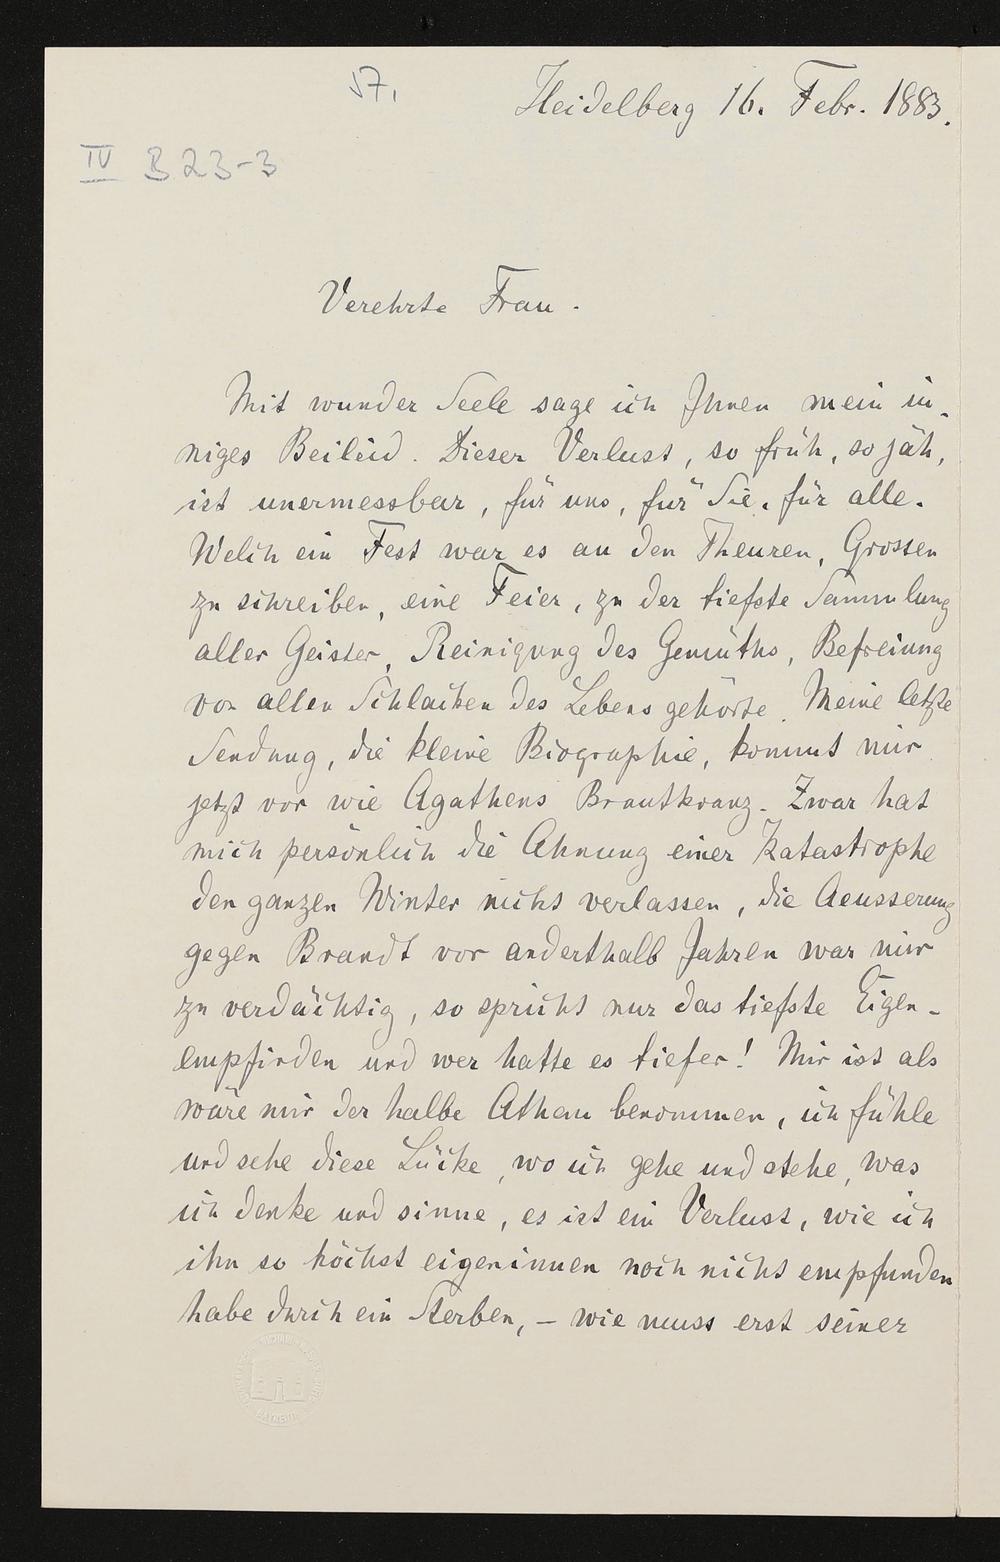 57.
Heidelberg 16. Febr. 1883.
IV B 23-3
Verehrte Frau.
Mit wunder Seele sage ich Ihnen mein in-
niges Beileid. Dieser Verlust, so früh, so jäh,
ist unermessbar, für uns, für Sie, für alle.
Welch ein Fest war es an den Theuren, Grossen
zu schreiben, eine Feier, zu der tiefste Sammlung
aller Geister, Reinigung des Gemüths, Befreiung
von allen Schlacken des Lebens gehörte. Meine letzte
Sendung, die kleine Biographie, kommt mir
jetzt vor wie Agathens Brautkranz. Zwar hat
mich persönlich die Ahnung einer Katastrophe
den ganzen Winter nicht verlassen, die Aeusserung
gegen Brandt vor anderthalb Jahren war mir
zu verdächtig, so spricht nur das tiefste Eigen-
empfinden und wer hatte es tiefer! Mir ist als
wäre mir der halbe Athem benommen, ich fühle
und sehe diese Lücke, wo ich gehe und stehe, was
ich denke und sinne, es ist ein Verlust, wie ich
ihn so höchst eigeninnen noch nicht empfunden
habe durch ein Sterben, – wie muss erst seiner